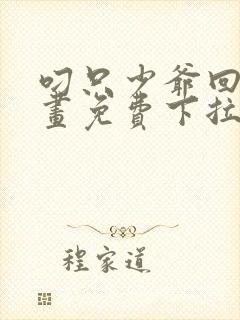 叼只少爷回
畫免費下拉
程家道